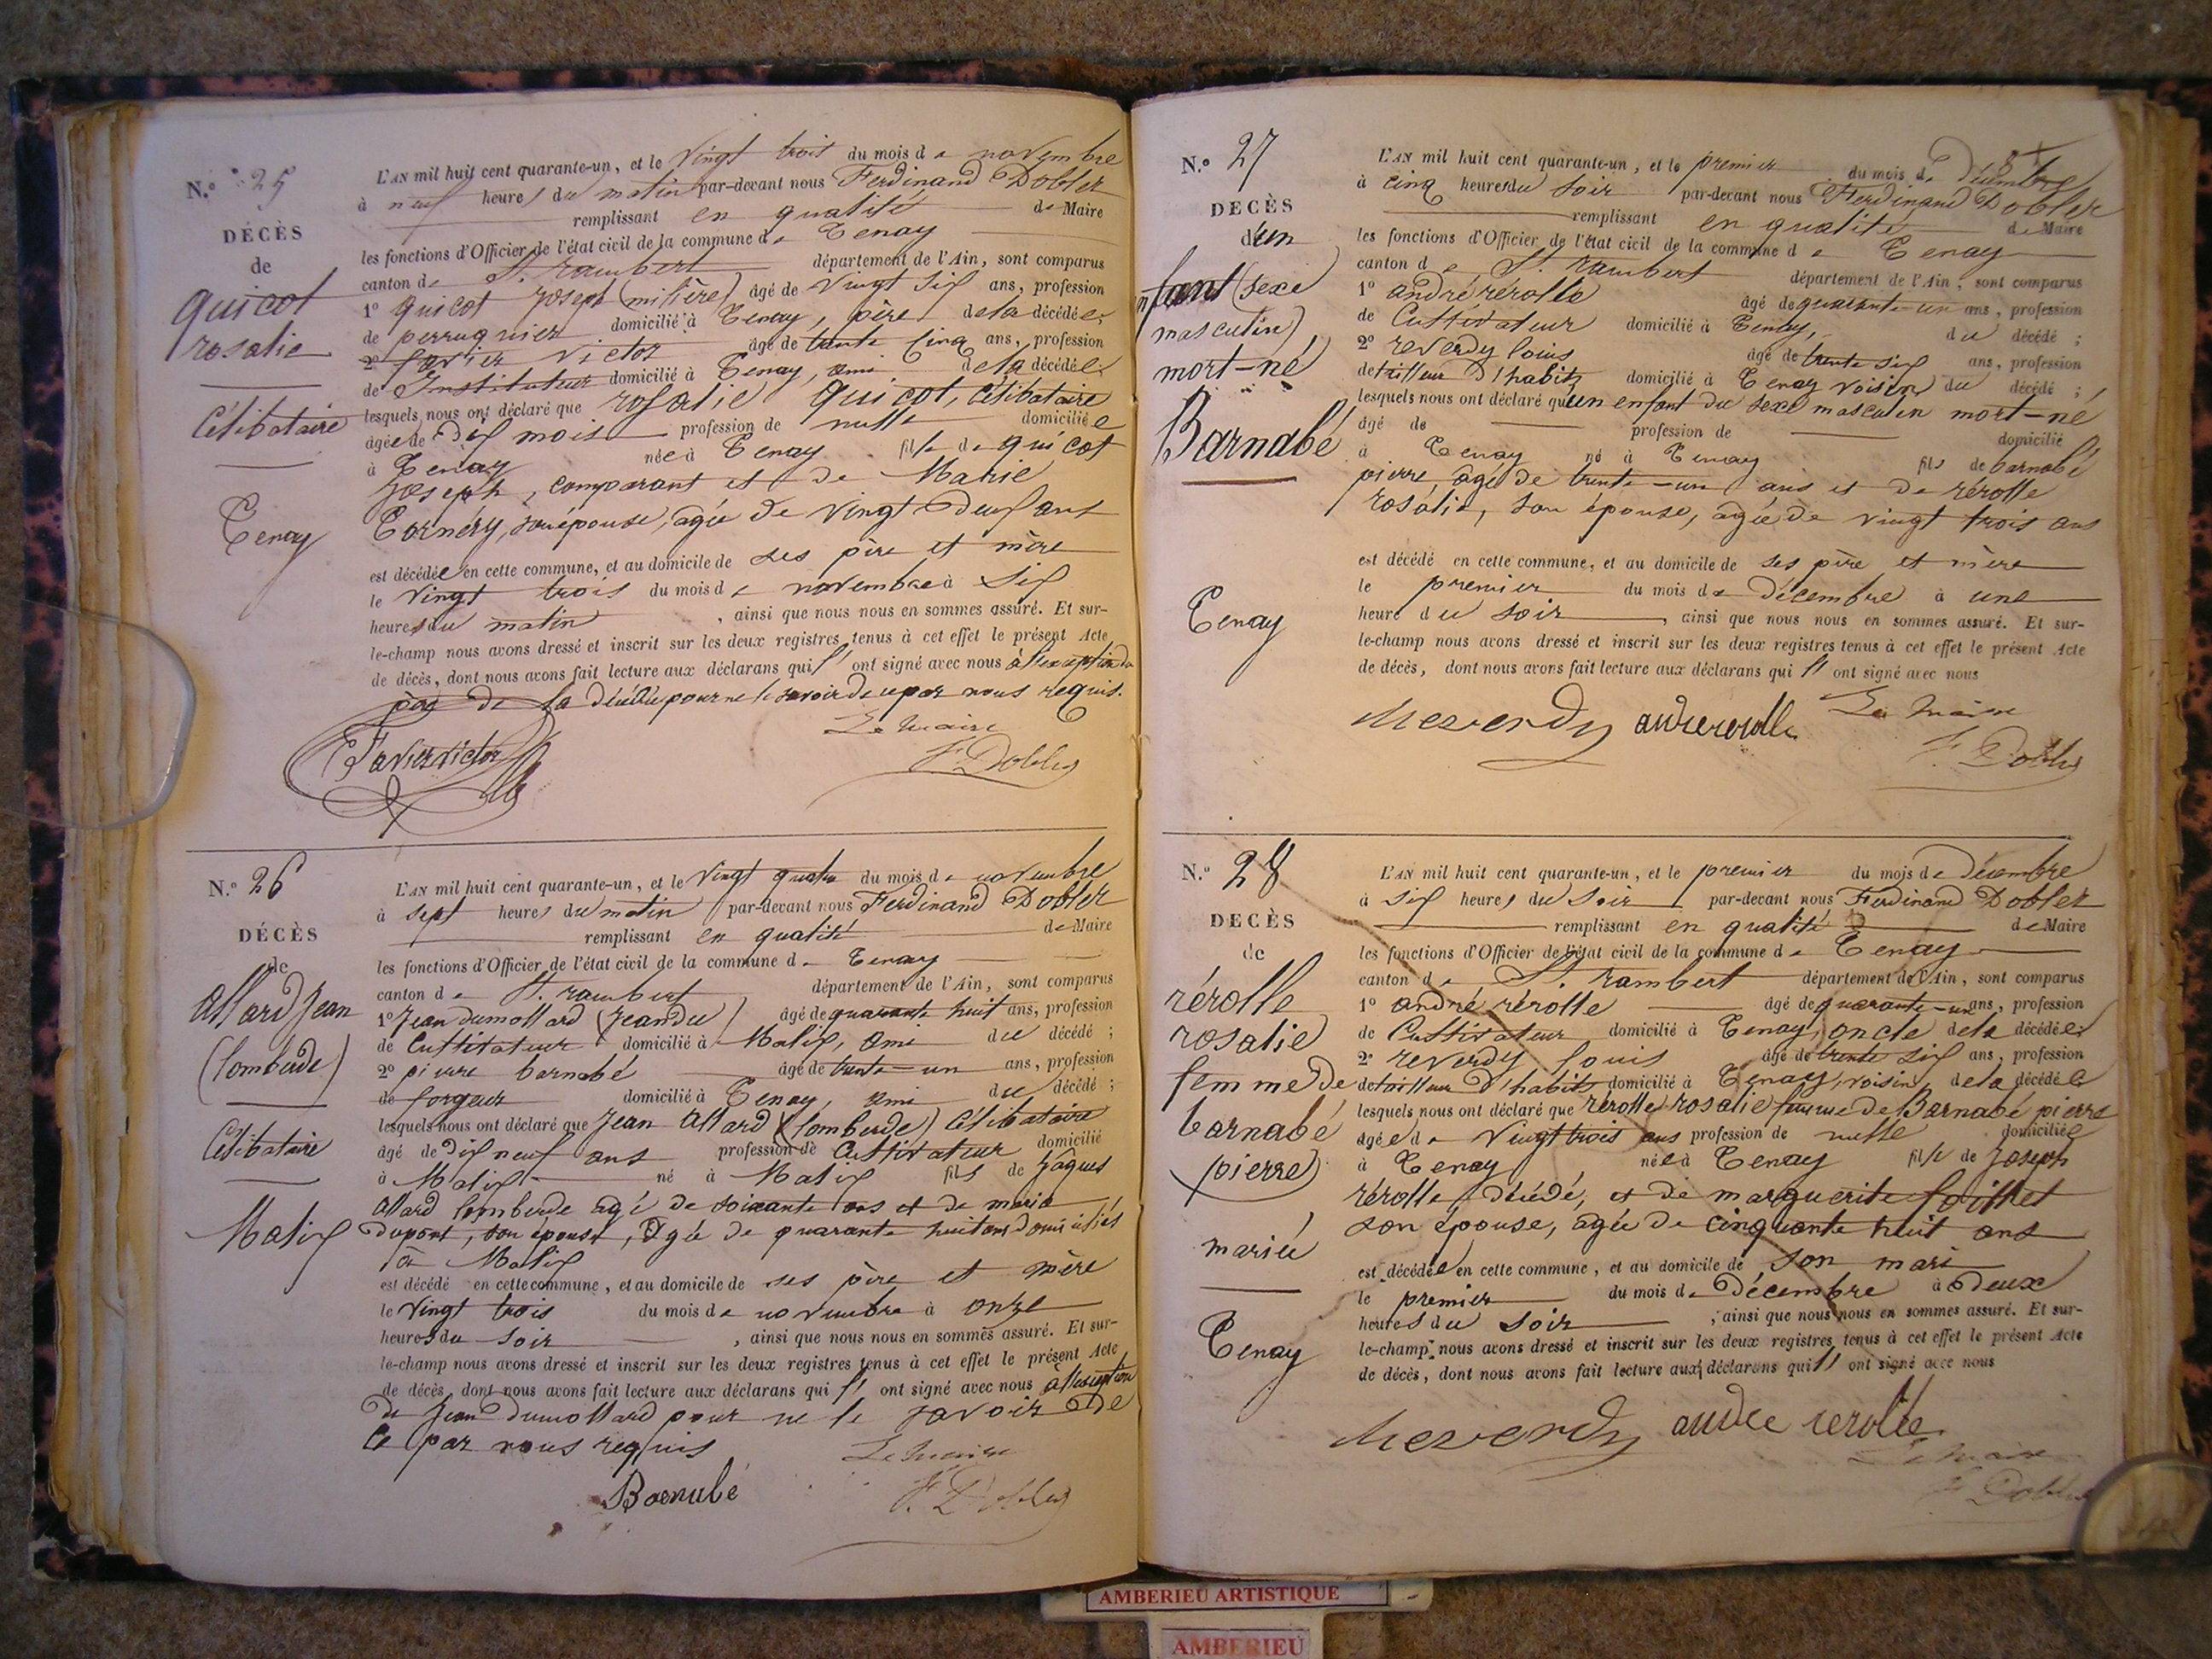 N.° 25
DÉCÈS
de
quicot
rosalie
Célibataire
Tenay
L'AN mil huit cent quarante-un, et le vingt trois du mois de novembre
à neuf heures du matin par-devant nous Ferdinand Dobler
remplissant en qualité de Maire
les fonctions d'Officier de l'état civil de la commune de Tenay
canton de St. rambert département de l'Ain, sont comparus
1° quicot joseph (milière) âgé de vingt six ans, profession
de perruquier domicilié à Tenay, père de la décédée;
2° favier victor âgé de trente cinq ans, profession
de Instituteur domicilié à Tenay, ami de la décédée;
lesquels nous ont déclaré que rosalie quicot, Célibataire
âgée de dix mois profession de nulle domiciliée
à Tenay née à Tenay fille de quicot
joseph, comparant et de Marie
Cornéry, son épouse, agée de vingt deux ans
est décédée en cette commune, et au domicile de ses père et mère
le vingt trois du mois de novembre à six
heures du matin, ainsi que nous nous en sommes assuré. Et sur-
le-champ nous avons dressé et inscrit sur les deux registres tenus à cet effet le présent Acte
de décès, dont nous avons fait lecture aux déclarans qui ont signé avec nous à l'exception du
père de la décédée pour ne le savoir de ce par nous requis.
Le Maire
Favier victor
F. Dobler
N.° 26
DÉCÈS
de
allard Jean
(lomberde)
Célibataire
Matix
L'AN mil huit cent quarante-un, et le vingt quatre du mois de novembre
à sept heures du matin par-devant nous Ferdinand Dobler
remplissant en qualité de Maire
les fonctions d'Officier de l'état civil de la commune de Tenay
canton de St. rambert département de l'Ain, sont comparus
1° Jean dumollard (jeandu) âgé de quarante huit ans, profession
de Cultivateur domicilié à Matix, ami du décédé;
2° pierre barnabé âgé de trente-un ans, profession
de forgeur domicilié à Tenay, ami du décédé;
lesquels nous ont déclaré que Jean allard (lomberde) Célibataire
âgé de dix neuf ans profession de Cultivateur domicilié
à Matix né à Matix fils de jâques
allard lomberde agé de soixante ans et de marie
dupont, son épouse, agée de quarante huit ans domiciliés
à Matix
est décédé en cette commune, et au domicile de ses père et mère
le vingt trois du mois de novembre à onze
heures du soir, ainsi que nous nous en sommes assuré. Et sur-
le-champ nous avons dressé et inscrit sur les deux registres tenus à cet effet le présent Acte
de décès, dont nous avons fait lecture aux déclarans qui ont signé avec nous à l'exception
de Jean dumollard pour ne le savoir de
ce par nous requis
Le Maire
Barnabé
F. Dobler
N.° 27
DÉCÈS
d'un
enfant (sexe
masculin)
mort-né
Barnabé
Tenay
L'AN mil huit cent quarante-un, et le premier du mois de décembre
à cinq heures du soir par-devant nous Ferdinand Dobler
remplissant en qualité de Maire
les fonctions d'Officier de l'état civil de la commune de Tenay
canton de St. rambert département de l'Ain, sont comparus
1° andré rérolle âgé de quarante-un ans, profession
de Cultivateur domicilié à Tenay, du décédé;
2° reverdy louis âgé de trente six ans, profession
de tailleur d'habits domicilié à Tenay voisin du décédé;
lesquels nous ont déclaré qu'un enfant du sexe masculin mort-né
âgé de profession de domicilié
à Tenay né à Tenay fils de barnabé
pierre, agé de trente-un ans et de rérolle
rosalie, son épouse, agée de vingt trois ans
est décédé en cette commune, et au domicile de ses père et mère
le premier du mois de Décembre à une
heure du soir, ainsi que nous nous en sommes assuré. Et sur-
le-champ nous avons dressé et inscrit sur les deux registres tenus à cet effet le présent Acte
de décès, dont nous avons fait lecture aux déclarans qui ont signé avec nous
Reverdy andré rerolle Le Maire
F. Dobler
N.° 28
DÉCÈS
de
rérolle
rosalie
femme de
barnabé
pierre
mariée
Tenay
L'AN mil huit cent quarante-un, et le premier du mois de décembre
à six heures du soir par-devant nous Ferdinand Dobler
remplissant en qualité de Maire
les fonctions d'Officier de l'état civil de la commune de Tenay
canton de St. rambert département de l'Ain, sont comparus
1° andré rérolle âgé de quarante-un ans, profession
de Cultivateur domicilié à Tenay, oncle de la décédée;
2° reverdy louis âgé de trente six ans, profession
de tailleur d'habits domicilié à Tenay, voisin de la décédée
lesquels nous ont déclaré que rérolle rosalie femme de Barnabé pierre
âgée de vingt trois ans profession de nulle domiciliée
à Tenay née à Tenay fille de joseph
rérolle, décédé, et de marguerite
son épouse, agée de cinquante huit ans
est décédée en cette commune, et au domicile de son mari
le premier du mois de Décembre à Deux
heures du soir, ainsi que nous nous en sommes assuré. Et sur-
le-champ nous avons dressé et inscrit sur les deux registres tenus à cet effet le présent Acte
de décès, dont nous avons fait lecture aux déclarans qui ont signé avec nous
Reverdy andré rerolle
Le Maire
F. Dobler
AMBERIEU ARTISTIQUE
AMBERIEU